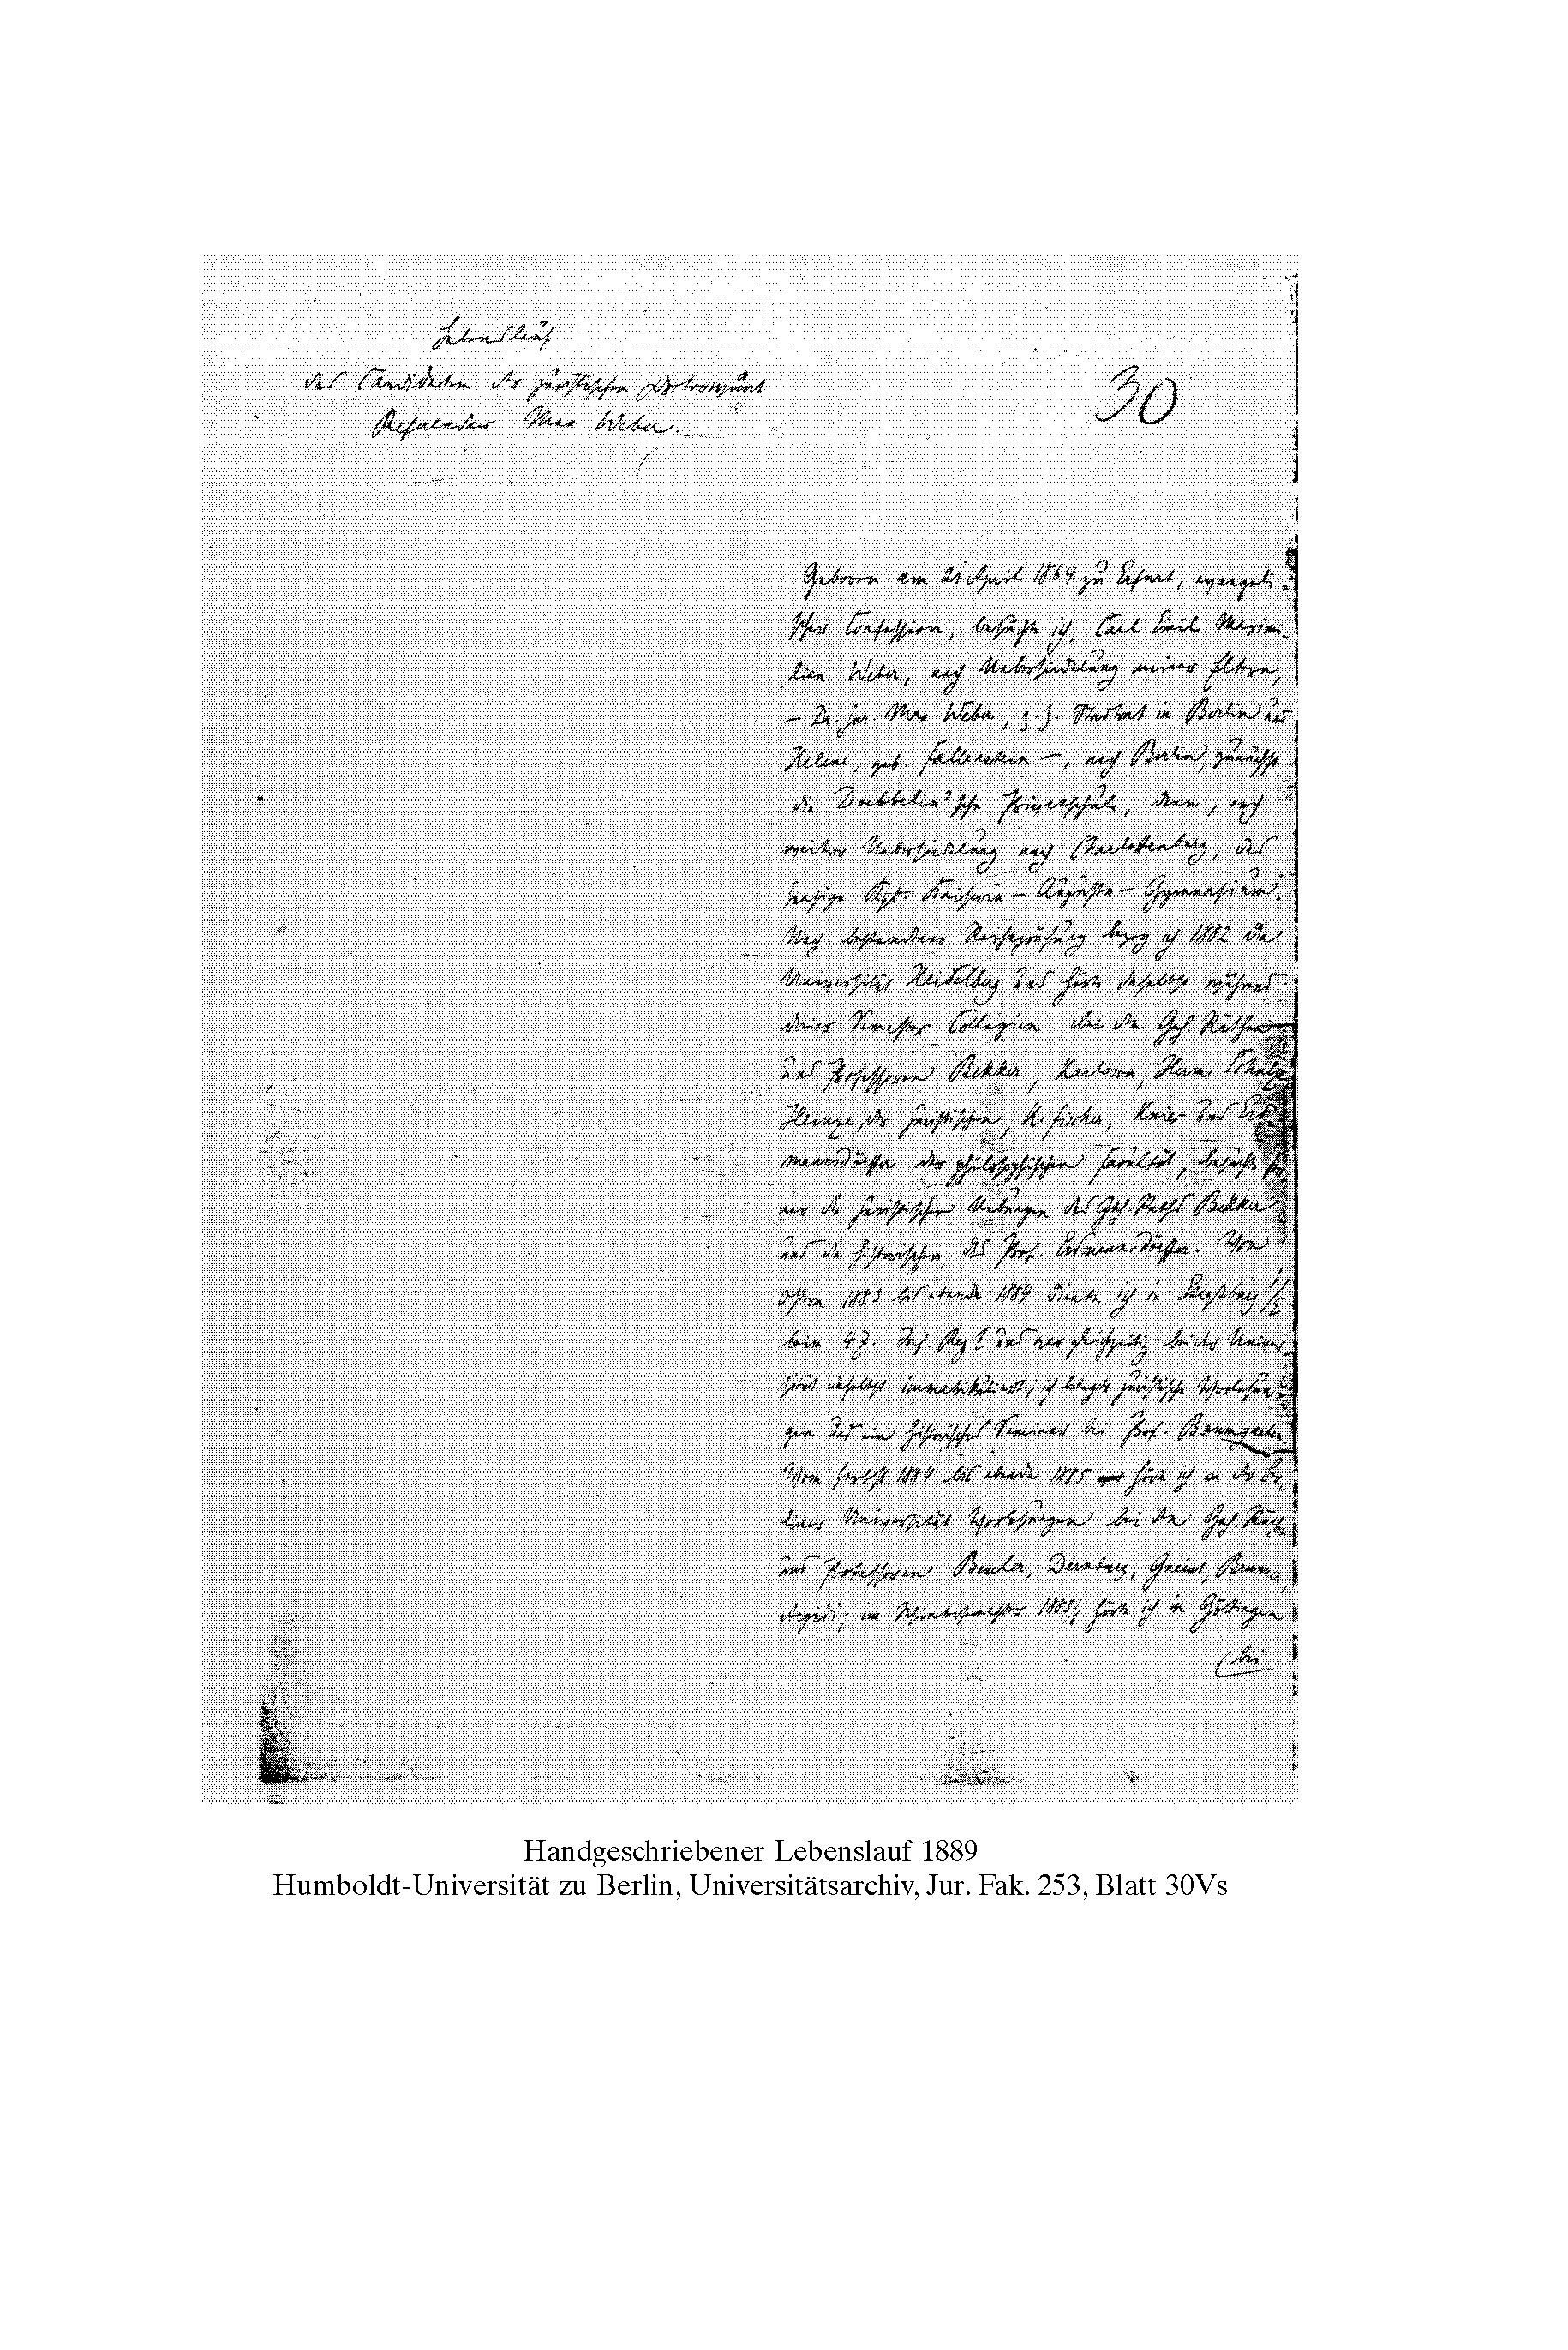 Lebenslauf
des Candidaten der juristischen Doktorwürde
Referendar Max Weber.
30
Geboren am 21 April 1864 zu Erfurt, evangeli-
scher Confession, besuchte ich, Carl Emil Maximi-
lian Weber, nach Uebersiedelung meiner Eltern,
– Dr. jur. Max Weber, z. Z. Stadtrat in Berlin und
Helene, geb. Fallenstein –, nach Berlin, zunächst
die Doebbelin'sche Privatschule, dann, nach
weiterer Uebersiedelung nach Charlottenburg, das
hiesige Kgl. Kaiserin – Augusta – Gymnasium.
Nach bestandener Reifeprüfung bezog ich 1882 die
Universität Heidelberg und hörte daselbst während
dreier Semester Collegien bei den Geh. Räthen
und Professoren Bekker, Karlowa, Herm. Schulze
Heinze, der juristischen, K. Fischer, Knies und Erd
mannsdörffer der philosophischen Facultät, besuchte
die juristischen Uebungen des Geh. Raths Bekker
und die historischen des Prof. Erdmannsdörffer. Von
Ostern 1883 bis ebenda 1884 diente ich in Straßburg i/E
beim 47. Inf. Reg t und war gleichzeitig bei der Univer-
sität daselbst immatrikuliert; ich belegte juristische Vorlesun-
gen und ein historisches Seminar bei Prof. Baumgarten.
Vom Herbst 1884 bis ebenda 1885 hörte ich an der Ber-
liner Universität Vorlesungen bei den Geh. Räthen
und Professoren Beseler, Dernburg, Gneist, Brunner,
Aegidi; im Wintersemester 1885/ hörte ich in Göttingen
bei
Handgeschriebener Lebenslauf 1889
Humboldt-Universität zu Berlin, Universitätsarchiv, Jur. Fak. 253, Blatt 30Vs